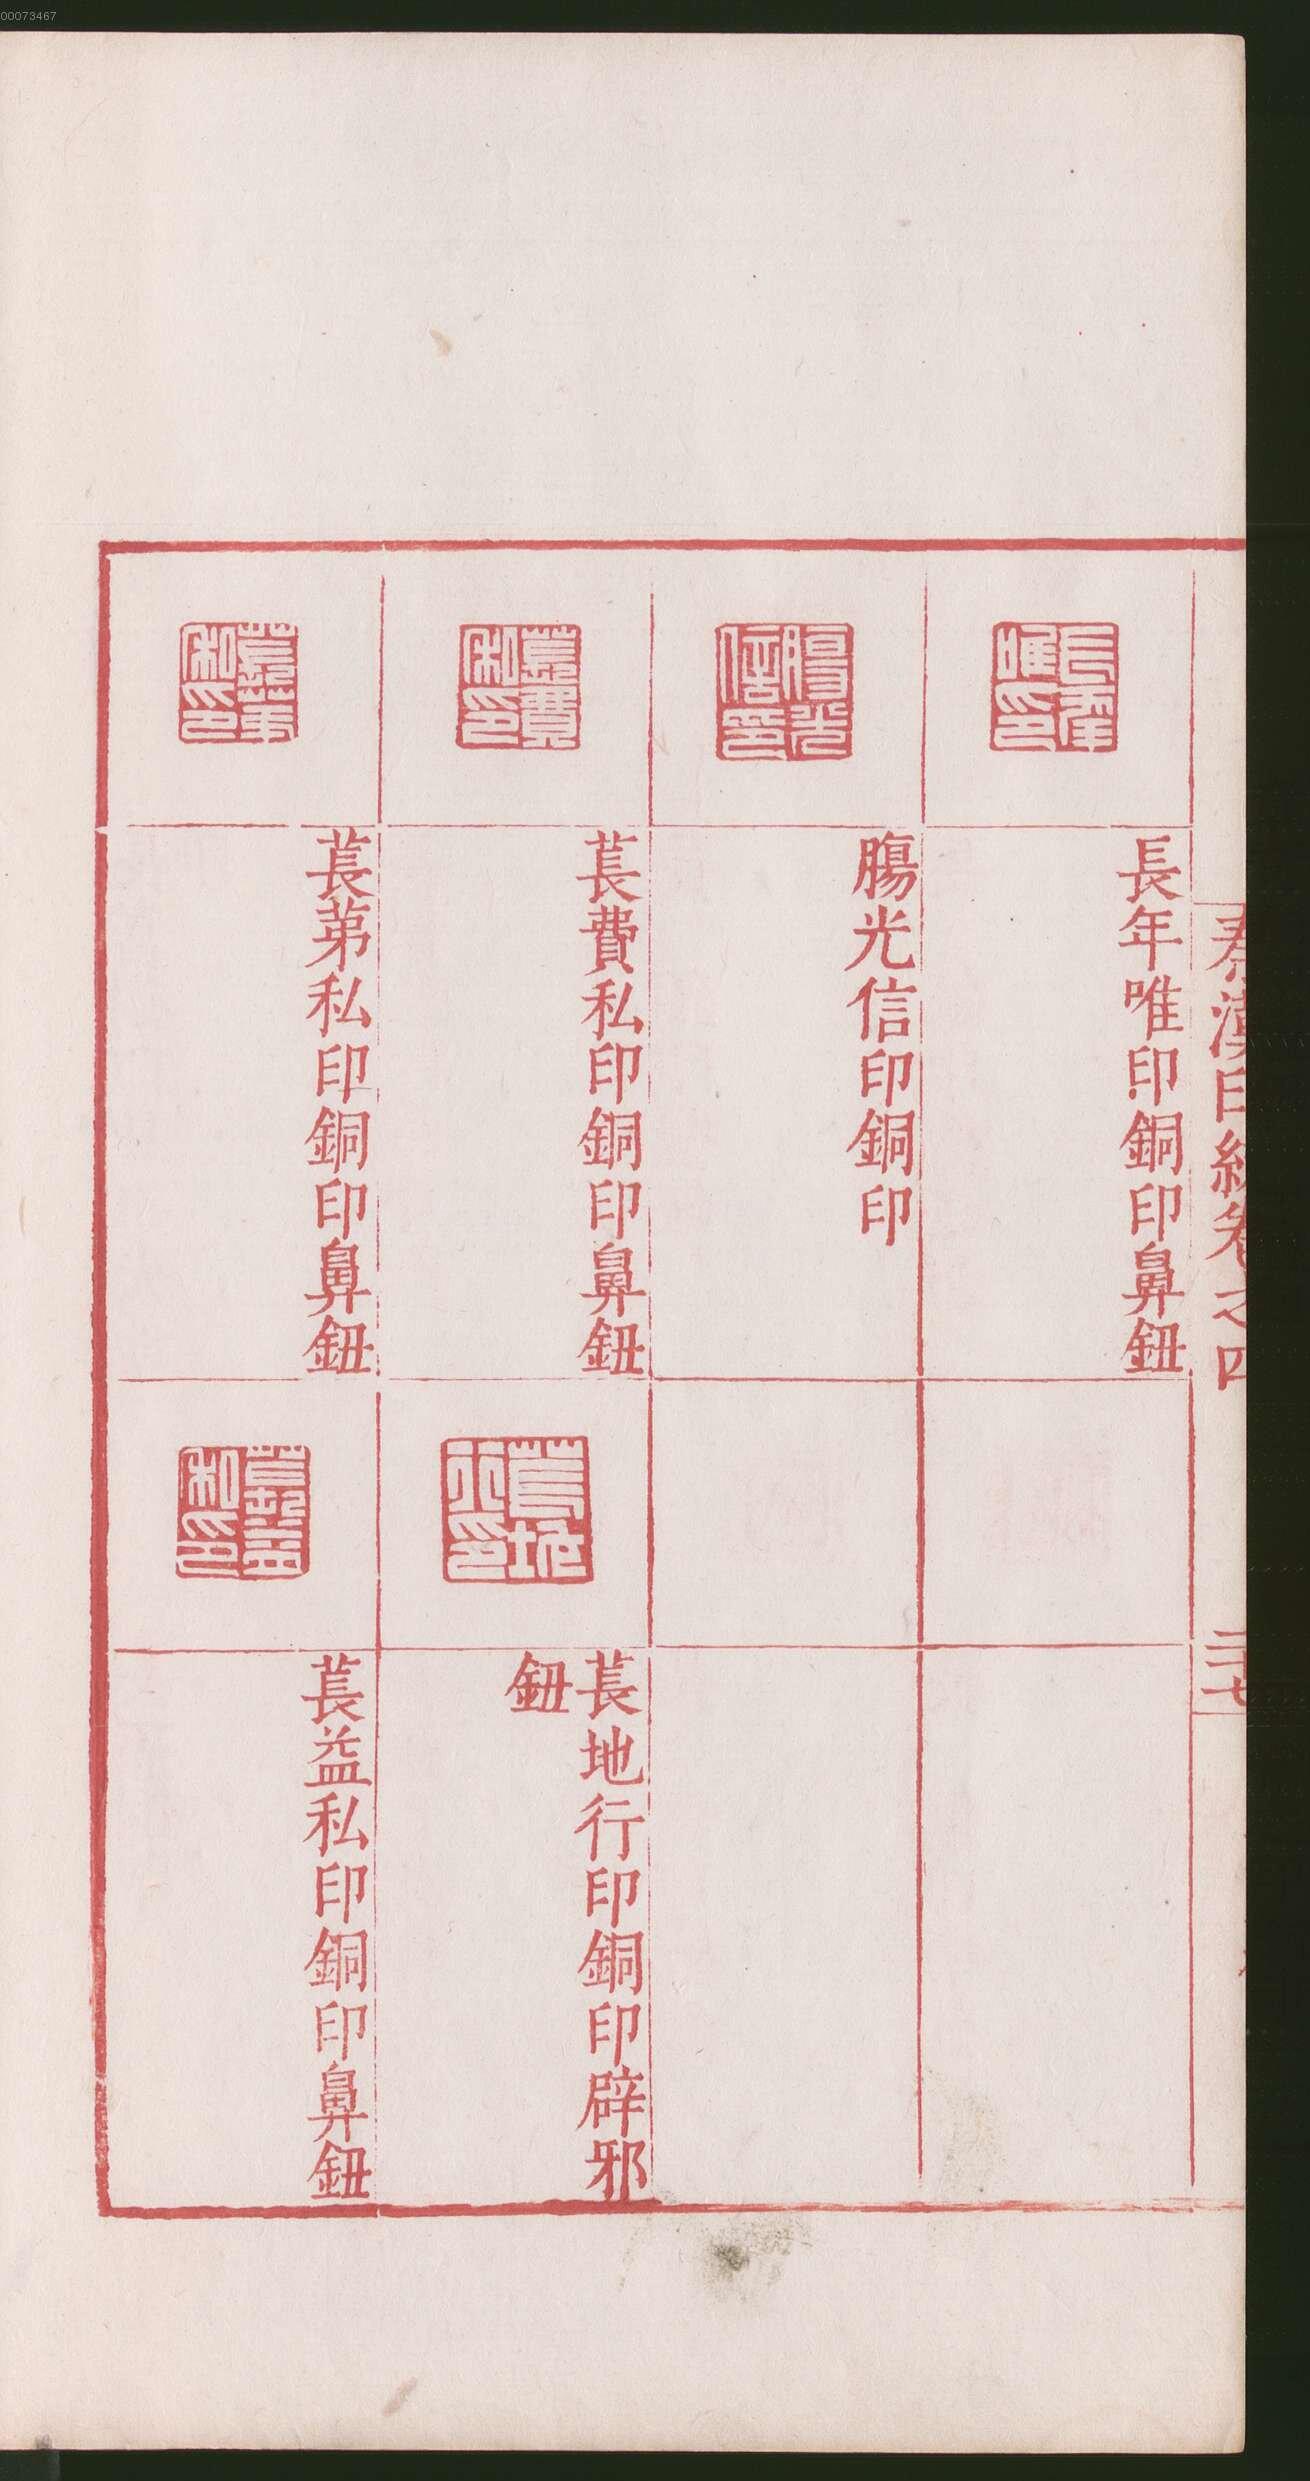 00073467
秦漢印統卷之四
二十七
長年唯印銅印鼻鈕
腸光信印銅印
萇費私印銅印鼻鈕
萇苐私印銅印鼻鈕
萇地行印銅印辟邪
鈕
萇益私印銅印鼻鈕